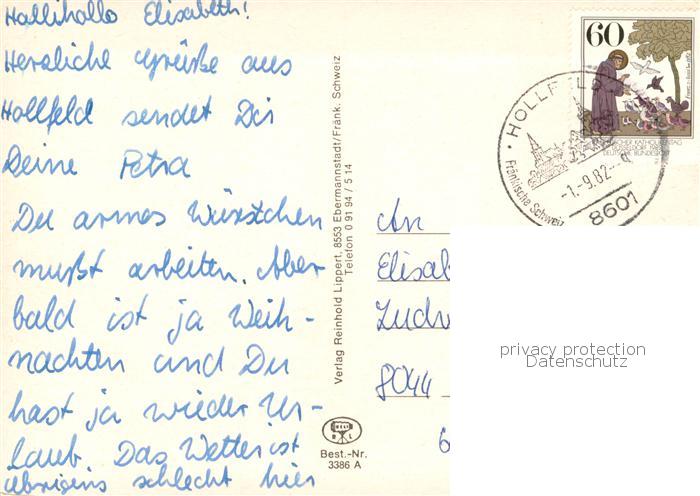 Hallihallo Elisabeth!
Herzliche Grüße aus
Hollfeld sendet Dir
Deine Petra
Du armes Würstchen
mußt arbeiten. Aber
bald ist ja Weih-
nachten und Du
hast ja wieder Ur-
laub. Das Wetter ist
übrigens schlecht hier
Verlag Reinhold Lippert, 8553 Ebermannstadt/Fränk. Schweiz
Telefon 0 91 94 / 5 14
Best.-Nr.
3386 A
60
HOLLFELD
Fränkische Schweiz
-1.-9.82
8601
DEUTSCHE BUNDESPOST
An
Elisab
Ludw
8044
6
privacy protection
Datenschutz